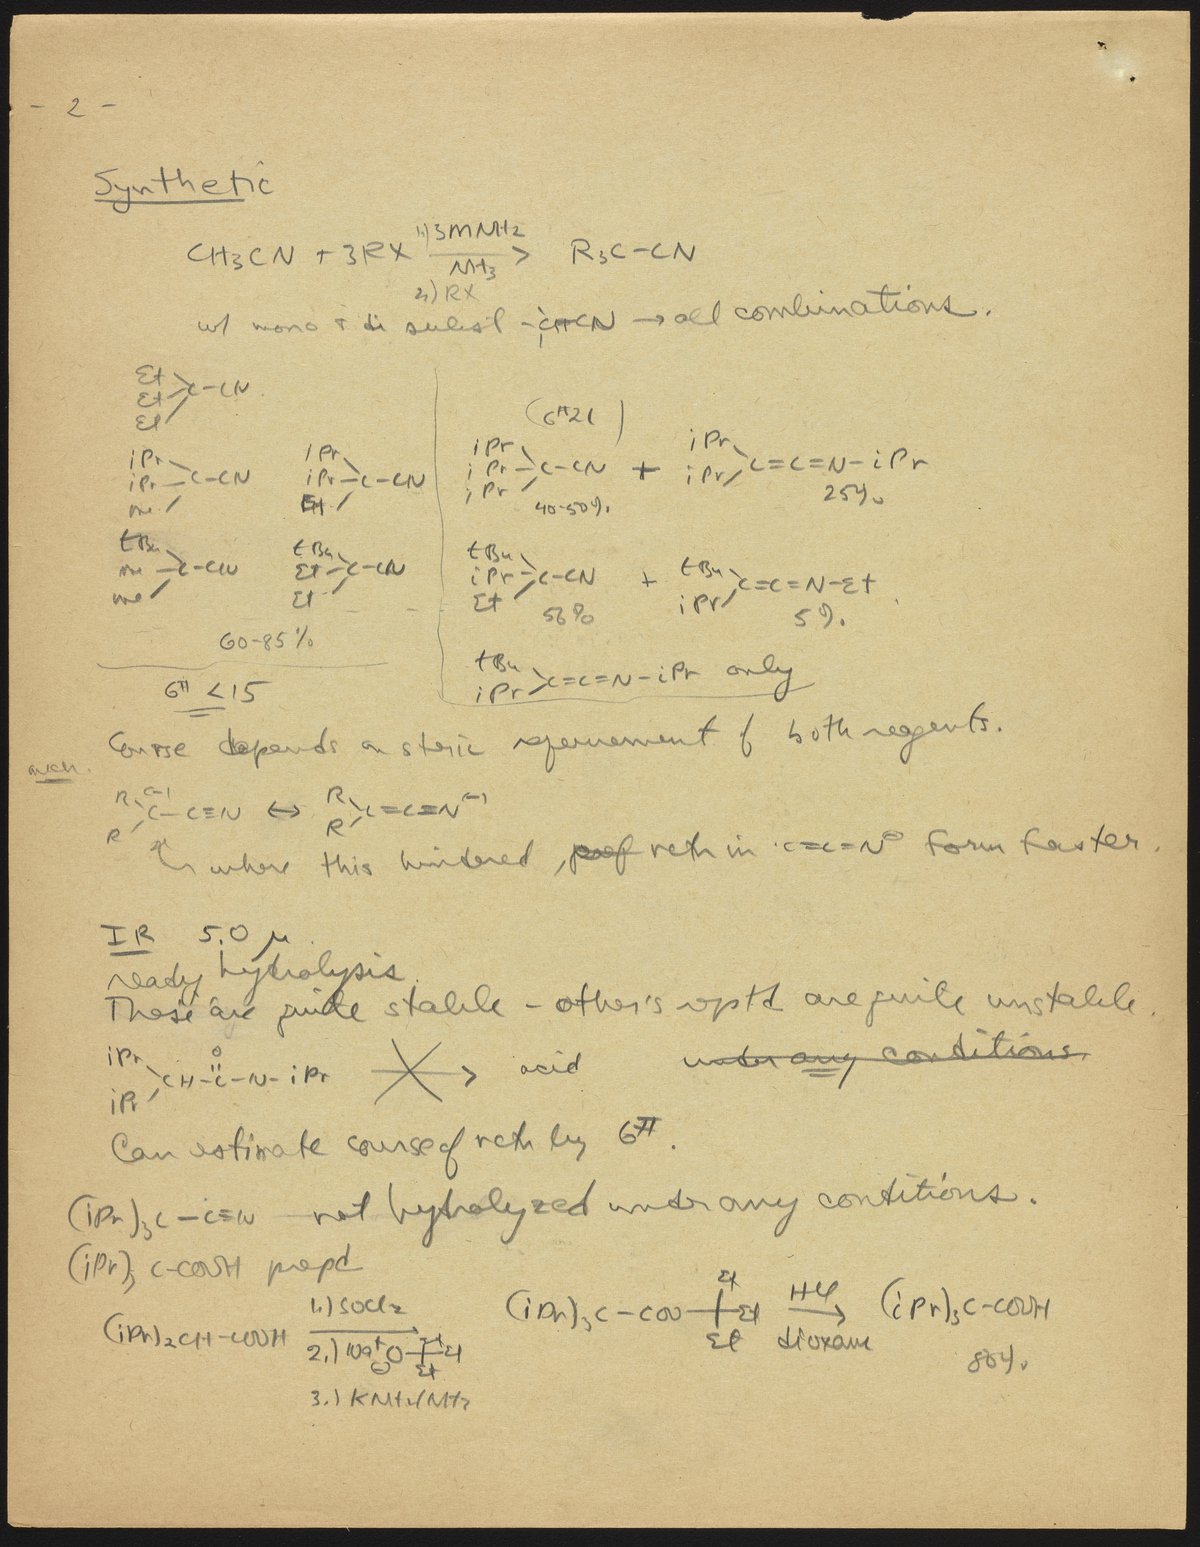 - 2 -
Synthetic
CH3CN + 3RX 1.) 3MNH2 / NH3 2.) RX → R3C-CN
w/ mono & di subst -CHCN → all combinations.
Et Et Et C-CN
(6# 21)
iPr iPr me C-CN   iPr iPr Et C-CN   iPr iPr iPr C-CN + iPr iPr C=C=N-iPr
40-50%   25%
tBu me me C-CN   tBu Et Et C-CN   tBu iPr Et C-CN + tBu iPr C=C=N-Et
56%   5%
60-85%
tBu iPr C=C=N-iPr only
6# <15
Course depends on steric of both reagents.
mech.
R R C(-)-C≡N ↔ R R C=C=N(-)
where this hindered, pref rctn in C=C=N⊖ form faster.
IR 5.0 μ
ready hydrolysis.
These are quite stable - other's rept'd are quite unstable.
iPr iPr CH-C-N-iPr → acid   under any conditions
O
Can estimate course of rctn by 6#.
(iPr)3C-C≡N not hydrolyzed under any conditions.
(iPr)3C-COOH prep'd
(iPr)2CH-COOH 1.) SOCl2 2.) Na+ ⊖O Et Et Et 3.) KNH2/NH3   (iPr)3C-COO Et Et Et HCl / dioxane → (iPr)3C-COOH
80%